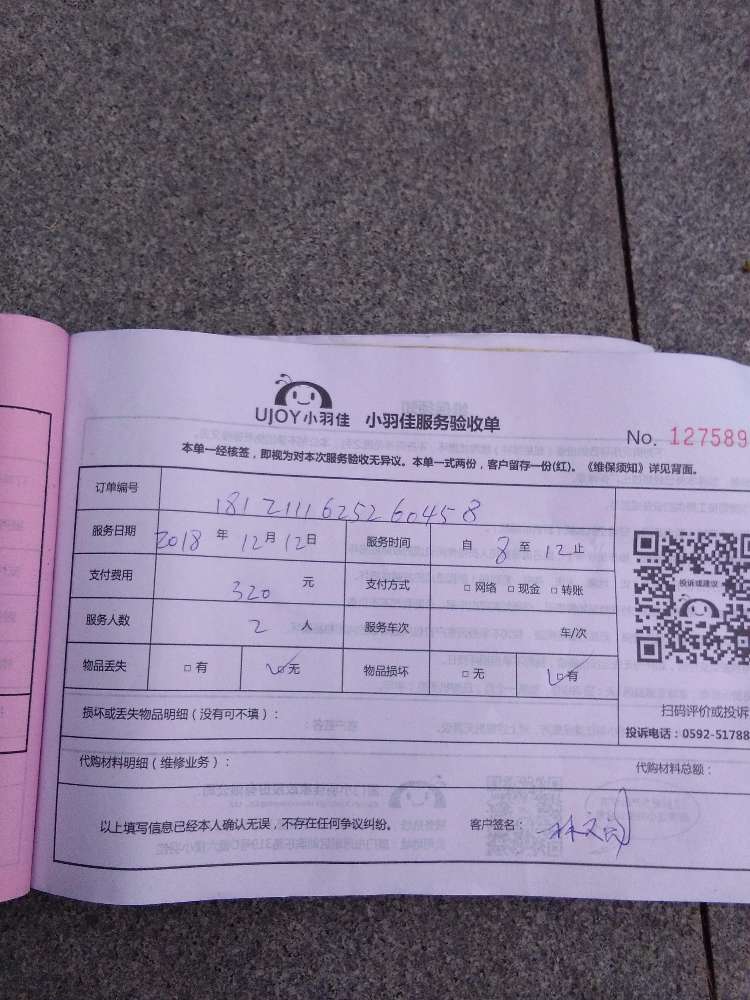 UJOY小羽佳 小羽佳服务验收单
No. 127589
本单一经核签，即视为对本次服务验收无异议。本单一式两份，客户留存一份(红)。《维保须知》详见背面。
订单编号 18121116252660458
服务日期 2018 年 12 月 12 日 服务时间 自 8 至 12 止
支付费用 320 元 支付方式 □ 网络 □ 现金 □ 转账
投诉或建议
服务人数 2 人 服务车次 车/次
物品丢失 □ 有 □ 无 物品损坏 □ 无 □ 有
扫码评价或投诉
损坏或丢失物品明细（没有可不填）：
投诉电话：0592-51788
代购材料明细（维修业务）： 代购材料总额：
以上填写信息已经本人确认无误，不存在任何争议纠纷。 客户签名：